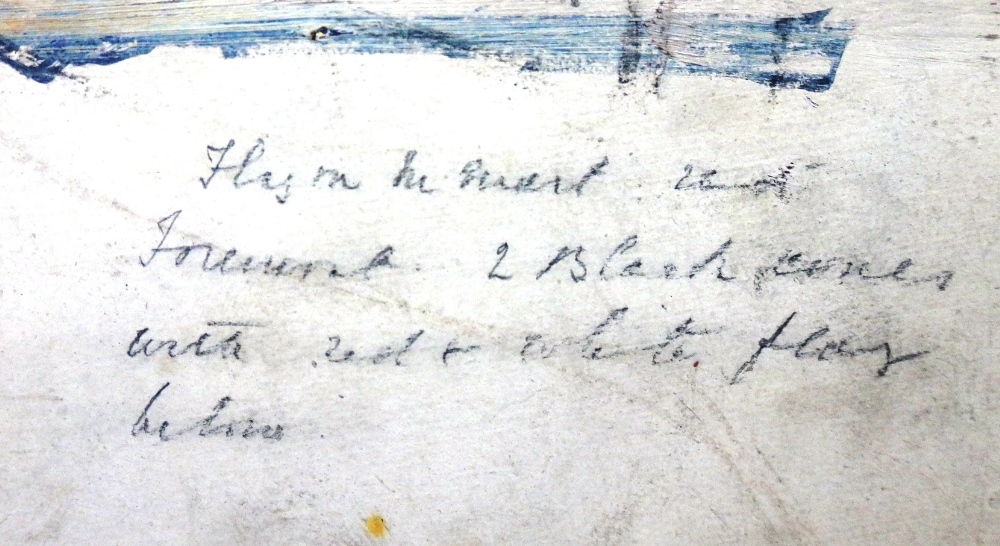 Flag on M Mast red
Foremast 2 Black cones
with red & white flag
below